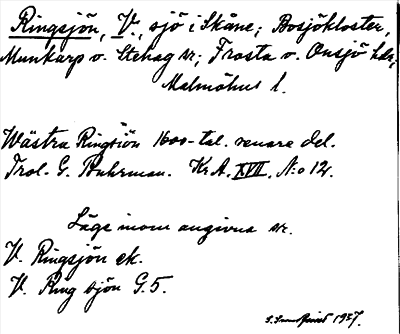 Ringsjön, V., sjö i Skåne; Bosjökloster,
Munkarp o. Stehag sr; Frosta o. Onsjö hdr;
Malmöhus l.
Wästra Ringsiön 1600-tal. senare del.
Trol. G. Buhrman. Kr.A. XVII. N:o 12.
Läge inom angivna sr.
V. Ringsjön ek.
V. Ring sjön G.5.
1957.